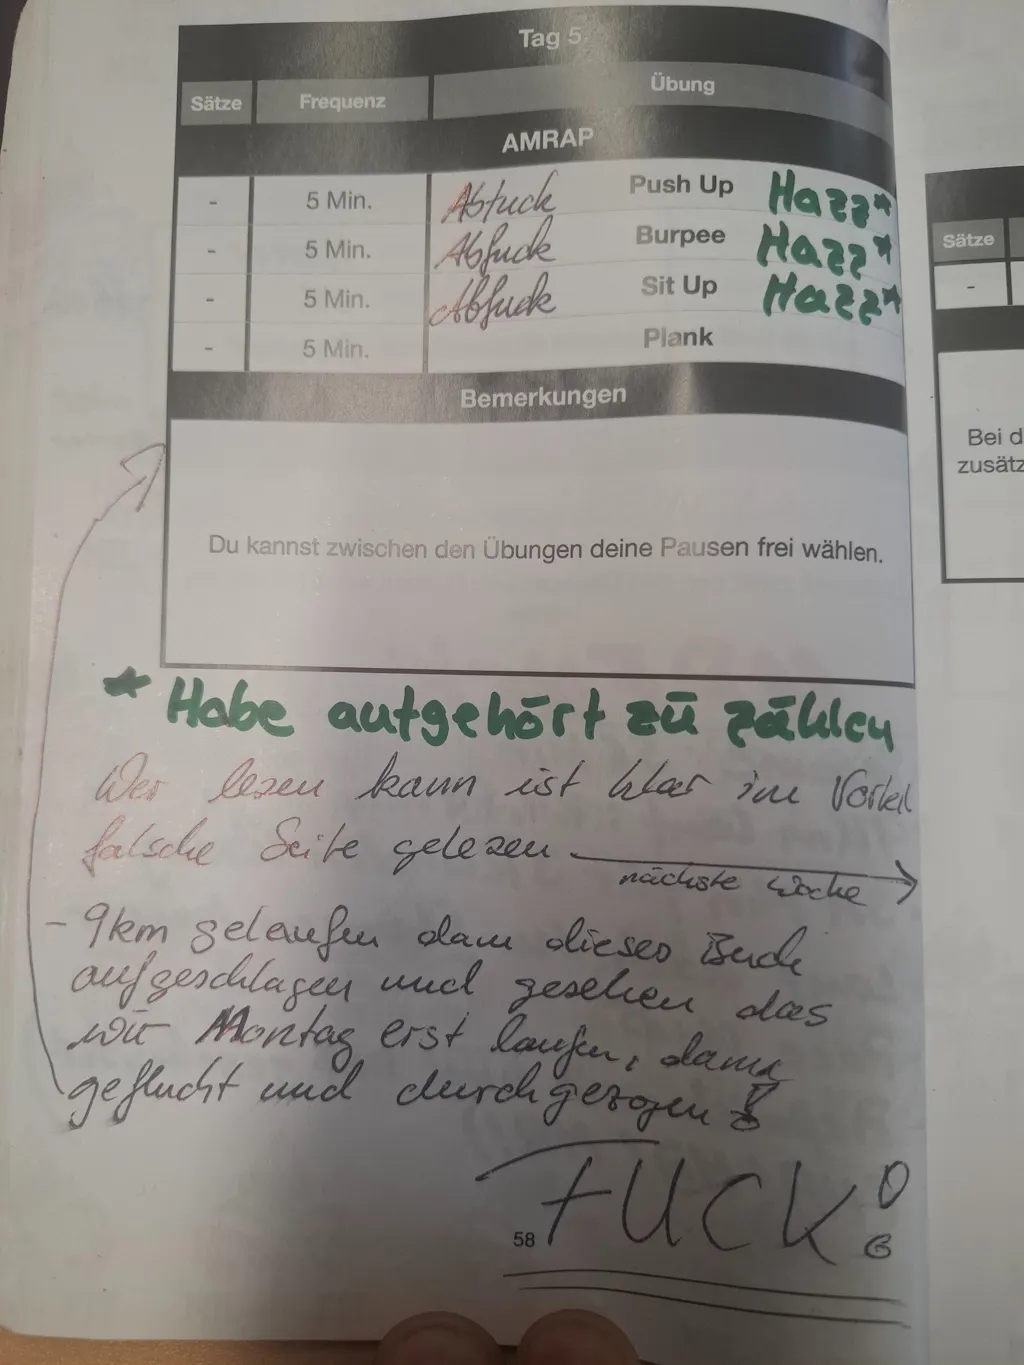 Tag 5
Sätze Frequenz Übung
AMRAP
- 5 Min. Abfuck Push Up Hazz*
- 5 Min. Abfuck Burpee Hazz*
- 5 Min. Abfuck Sit Up Hazz*
- 5 Min. Plank
Bemerkungen
Du kannst zwischen den Übungen deine Pausen frei wählen.
* Habe aufgehört zu zählen
Wer lesen kann ist klar im Vorteil
falsche Seite gelesen
nächste Woche
- 9km gelaufen dann dieses Buch
aufgeschlagen und gesehen das
wir Montag erst laufen, dann
geflucht und durchgezogen!
FUCK!
58
Sätze
-
Bei d
zusätz